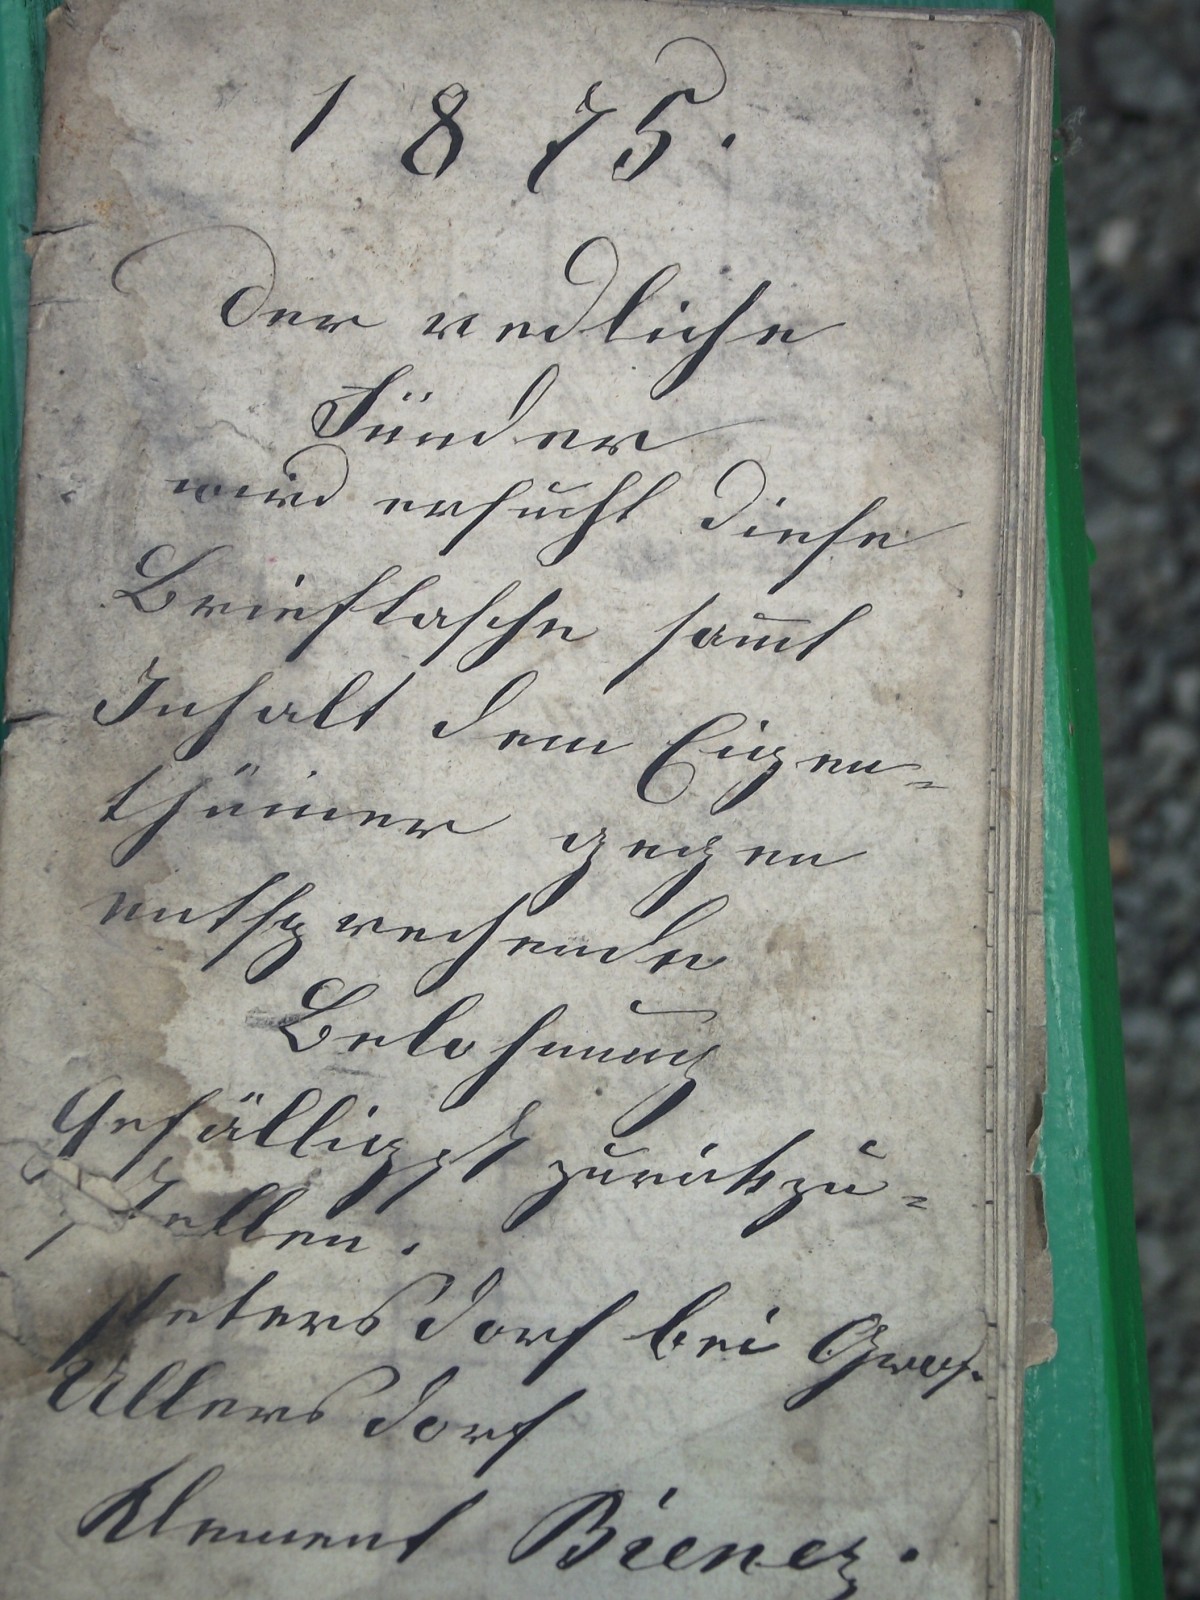 1875.
Der redliche
Finder
wird ersucht diese
Brieftasche sam̅t
Inhalt dem Eigen=
thümer gegen
entsprechende
Belohnung
Gefälligst zurückzu=
stellen.
Petersdorf bei Groß.
Ullersdorf
Klement Biener.